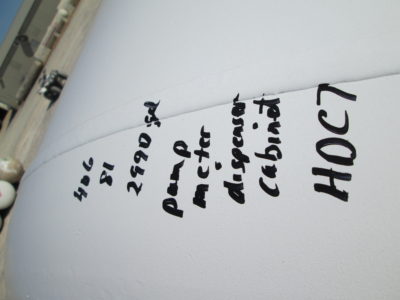 406
81
2990 gal
pump
meter
dispenser
cabinet
HDCT